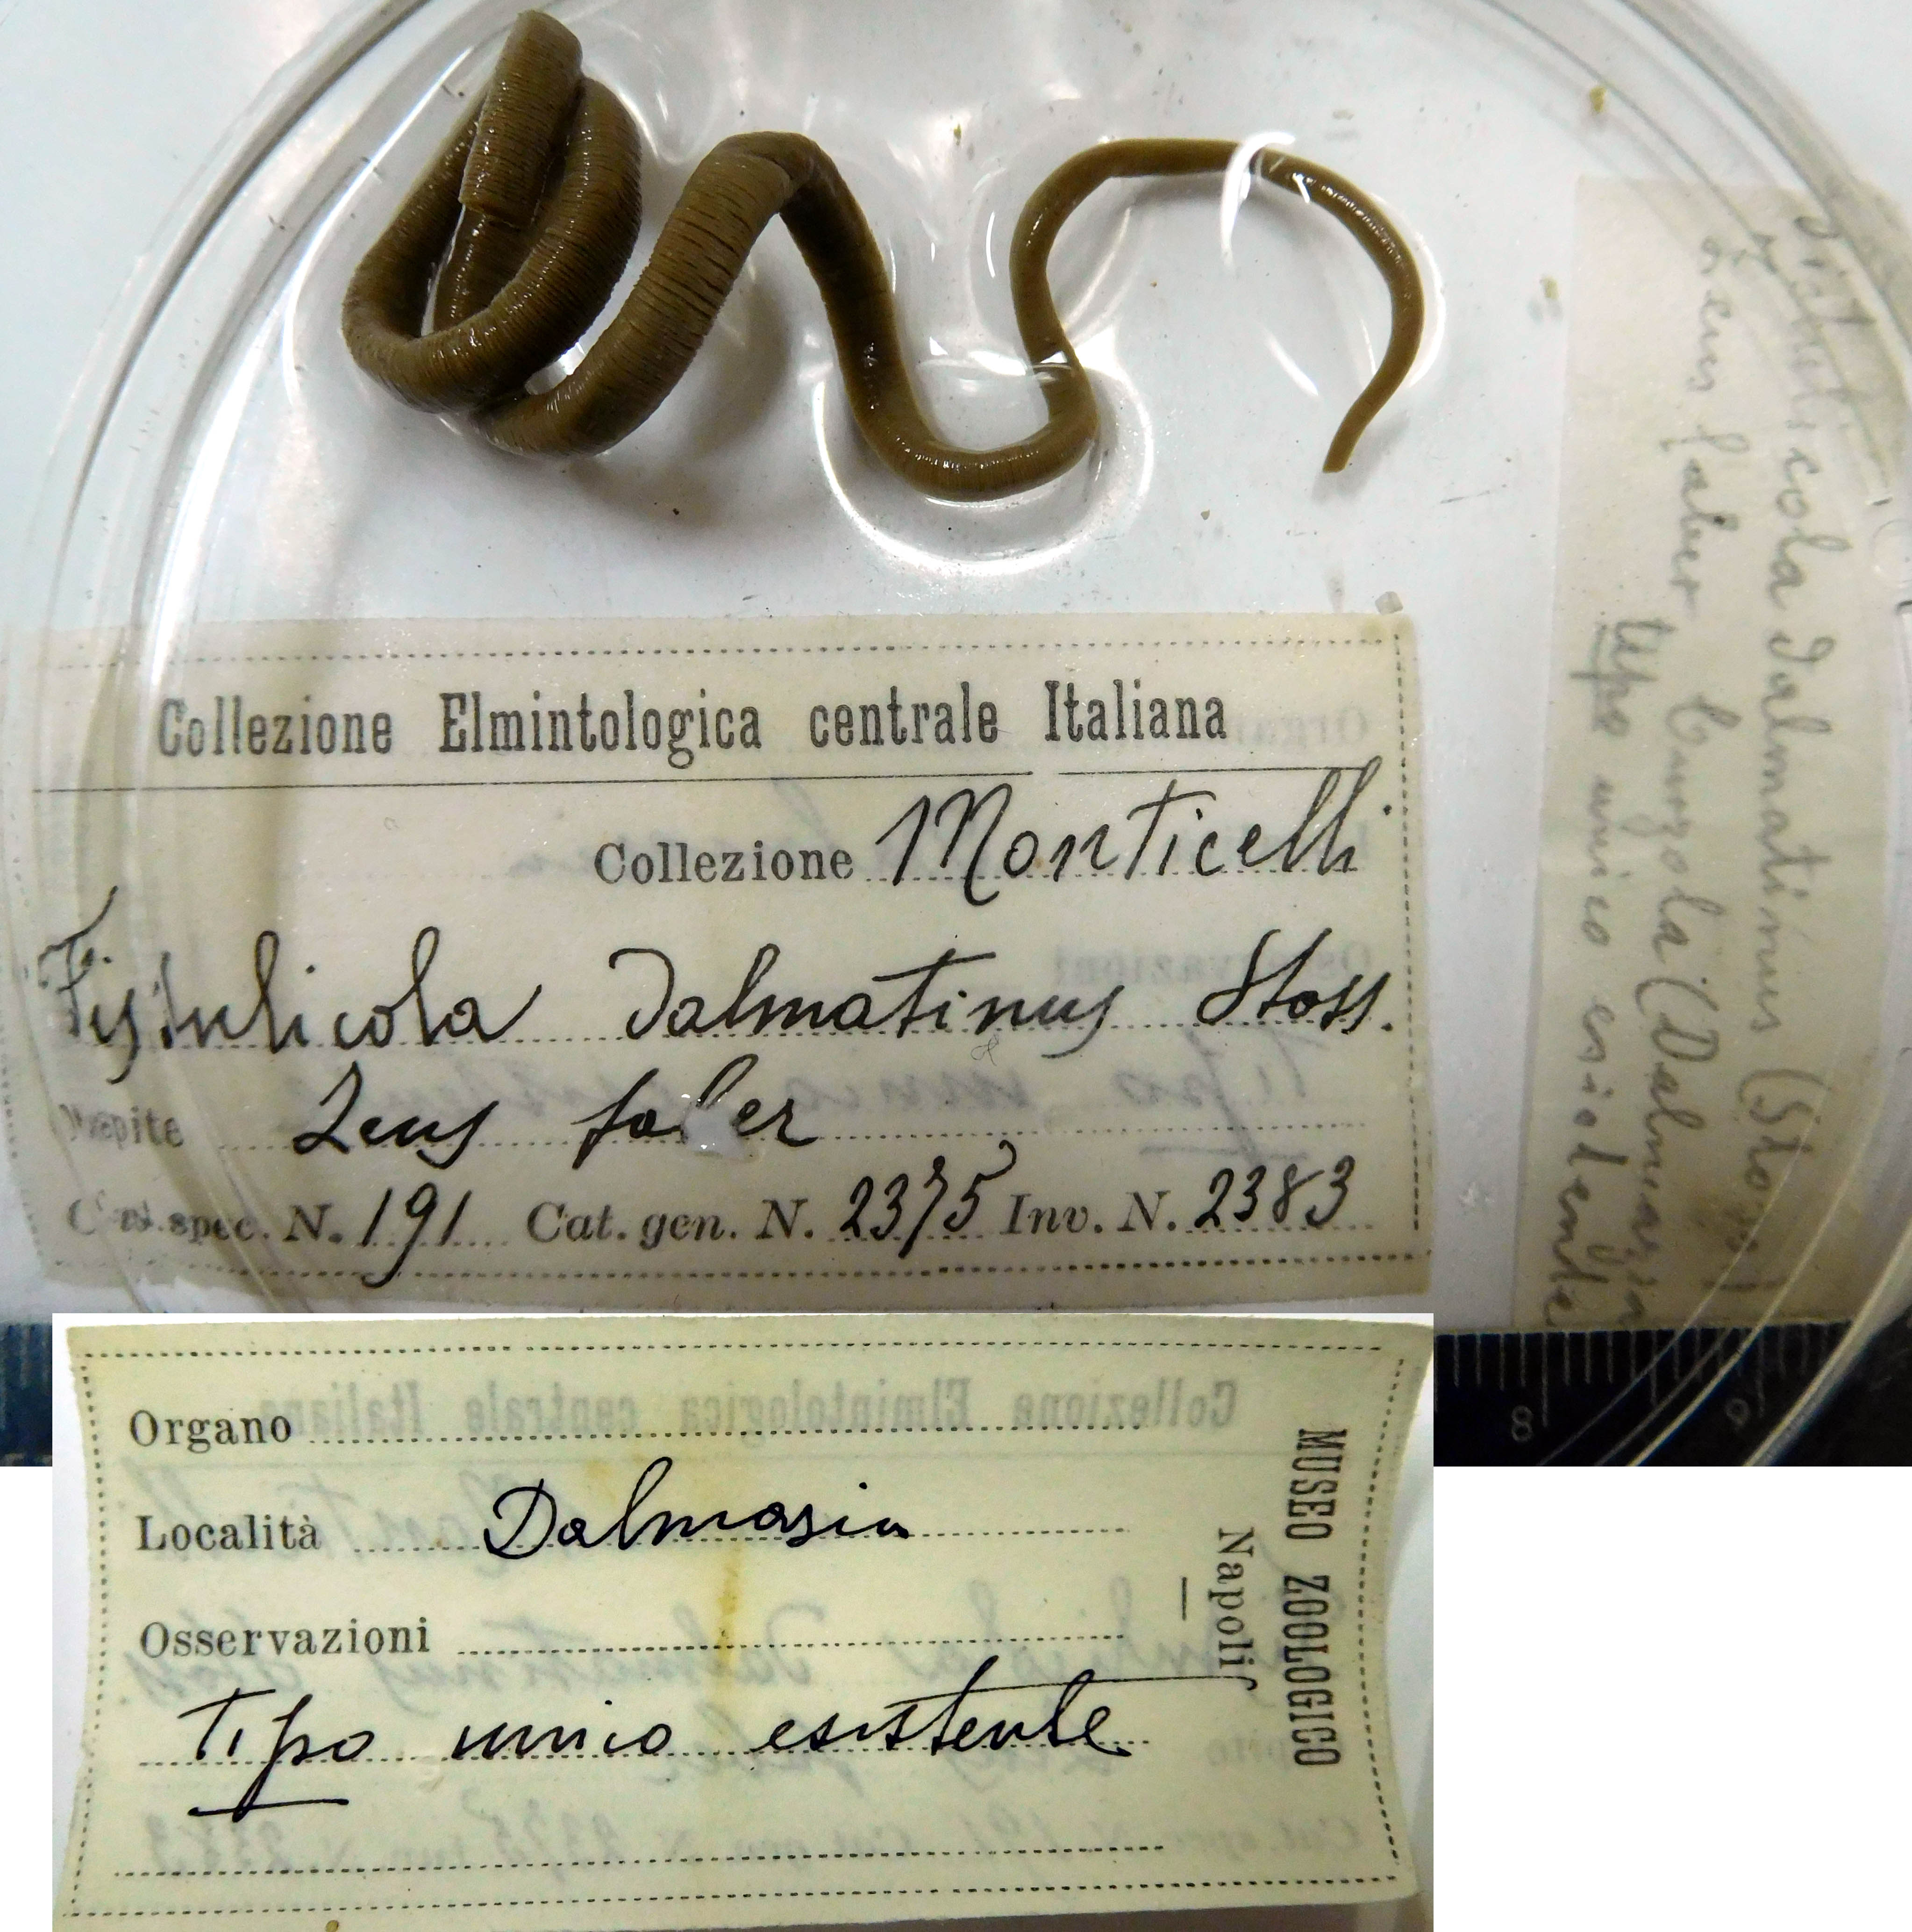 Collezione Elmintologica centrale Italiana
Collezione Monticelli
Fistulicola Dalmatinus Stoss.
Ospite Zeus faber
Cat. spec. N. 191 Cat. gen. N. 2375 Inv. N. 2383
Fistulicola Dalmatinus (Stoss)
Zeus faber Curzola (Dalmazia
Tipo unico esistente
8
9
Organo
Località Dalmasia
Osservazioni
Tipo unico esistente
MUSEO ZOOLOGICO
Napoli